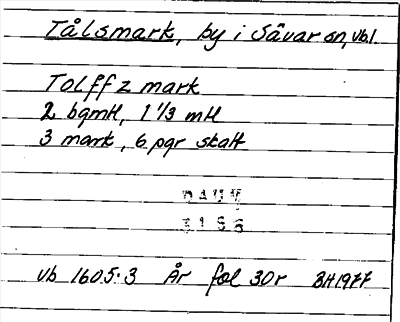 Tålsmark, by i Sävar sn, Vbl.
Tolff z mark
2 bgmH, 1 1/3 mH
3 mark, 6 pgr skatt
DAUM
3186
Vb 1605:3 År fol 30r BH1977